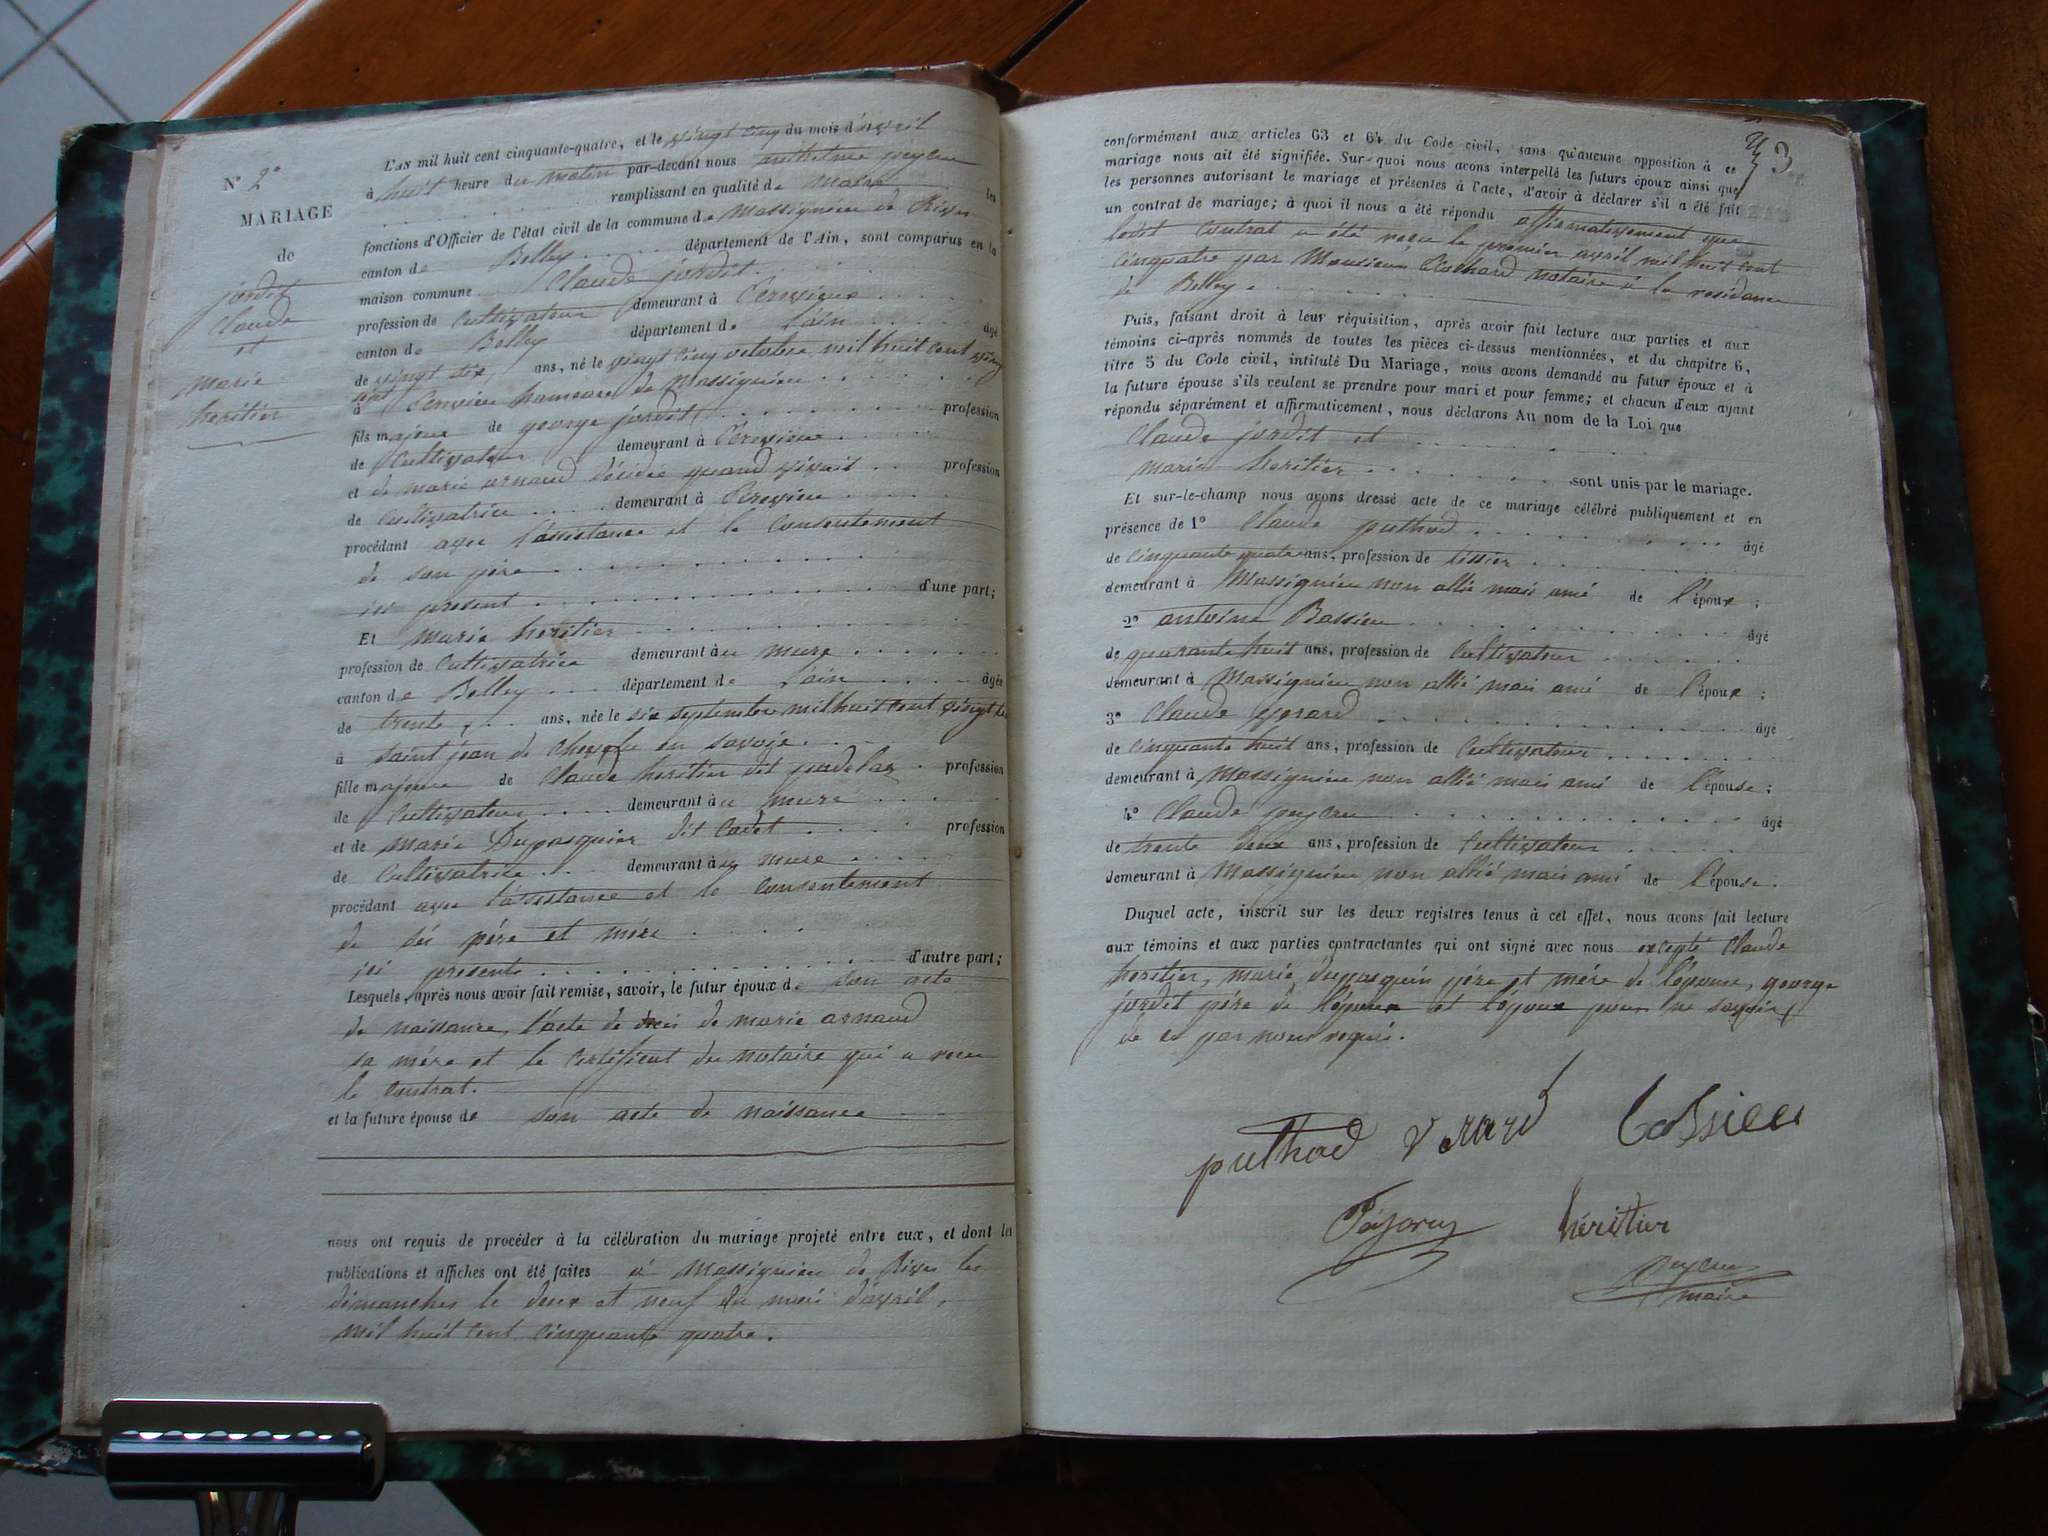 N° 2°
MARIAGE
de
jordit
Claude
et
marie
heritier
L'AN mil huit cent cinquante-quatre, et le vingt cinq du mois d'avril
à huit heure du matin par-devant nous anthelme peycru
remplissant en qualité de Maire les
fonctions d'Officier de l'état civil de la commune de Massignieu de Rives
canton de Belley département de l'Ain, sont comparus en la
maison commune Claude jordit
profession de Cultivateur demeurant à
canton de Belley département de l'ain âgé
de vingt six ans, né le vingt cinq octobre mil huit cent vingt
sept
à hameau de Massignieu
fils majeur de george jordit profession
de Cultivateur demeurant à
et de marie arnaud décédée quand vivait profession
de Cultivatrice demeurant à
procédant avec l'assistance et le Consentement
de son père
ici present d'une part;
Et marie heritier
profession de Cultivatrice demeurant à mure
canton de Belley département de l'ain âgée
de trente ans, née le six septembre mil huit cent vingt
à saint jean de en savoie
fille majeure de Claude heritier dit profession
de Cultivateur demeurant à mure
et de Marie Dupasquier dit Cadet profession
de Cultivatrice demeurant à mure
procédant avec l'assistance et le Consentement
de sés père et mére
ici presents d'autre part;
Lesquels, après nous avoir fait remise, savoir, le futur époux de son acte
de naissance, l'acte de de marie arnaud
sa mére et le Certificat du notaire qui a recu
le contrat.
et la future épouse de son acte de naissance
nous ont requis de procéder à la célébration du mariage projeté entre eux, et dont les
publications et affiches ont été faites à Massignieu de Rives les
dimanches le deux et neuf du mois d'avril,
mil huit cent cinquante quatre.
3
conformément aux articles 63 et 64 du Code civil, sans qu'aucune opposition à ce
mariage nous ait été signifiée. Sur-quoi nous avons interpellé les futurs époux ainsi que
les personnes autorisant le mariage et présentes à l'acte, d'avoir à déclarer s'il a été fait
un contrat de mariage; à quoi il nous a été répondu affirmativement que
ledit Contrat a été recu le premier avril mil huit cent
cinquatre par Monsieur notaire à la residence
de Belley.
Puis, faisant droit à leur réquisition, après avoir fait lecture aux parties et aux
témoins ci-après nommés de toutes les pièces ci-dessus mentionnées, et du chapitre 6,
titre 5 du Code civil, intitulé Du Mariage, nous avons demandé au futur époux et à
la future épouse s'ils veulent se prendre pour mari et pour femme; et chacun d'eux ayant
répondu séparément et affirmativement, nous déclarons Au nom de la Loi que
Claude jordit et
marie heritier
sont unis par le mariage.
Et sur-le-champ nous avons dressé acte de ce mariage célébré publiquement et en
présence de 1° Claude puthod âgé
de cinquante quatre ans, profession de tissier
demeurant à Massignieu non allié mais amé de l'époux;
2° antoine Bassieu âgé
de quarante huit ans, profession de Cultivateur
demeurant à Massignieu non allié mais amé de l'époux;
3° Claude verard âgé
de cinquante huit ans, profession de Cultivateur
demeurant à Massignieu non allié mais amé de l'épouse;
4° Claude peycru âgé
de trente deux ans, profession de Cultivateur
demeurant à Massignieu non allié mais amé de l'épouse.
Duquel acte, inscrit sur les deux registres tenus à cet effet, nous avons fait lecture
aux témoins et aux parties contractantes qui ont signé avec nous excepté Claude
heritier, marie dupasquier père et mére de l'épouse, george
jordit père de l'époux et l'époux pour ne savoir
de ce par nous requis.
puthod verard bassieu
héritier
Peycru
maire